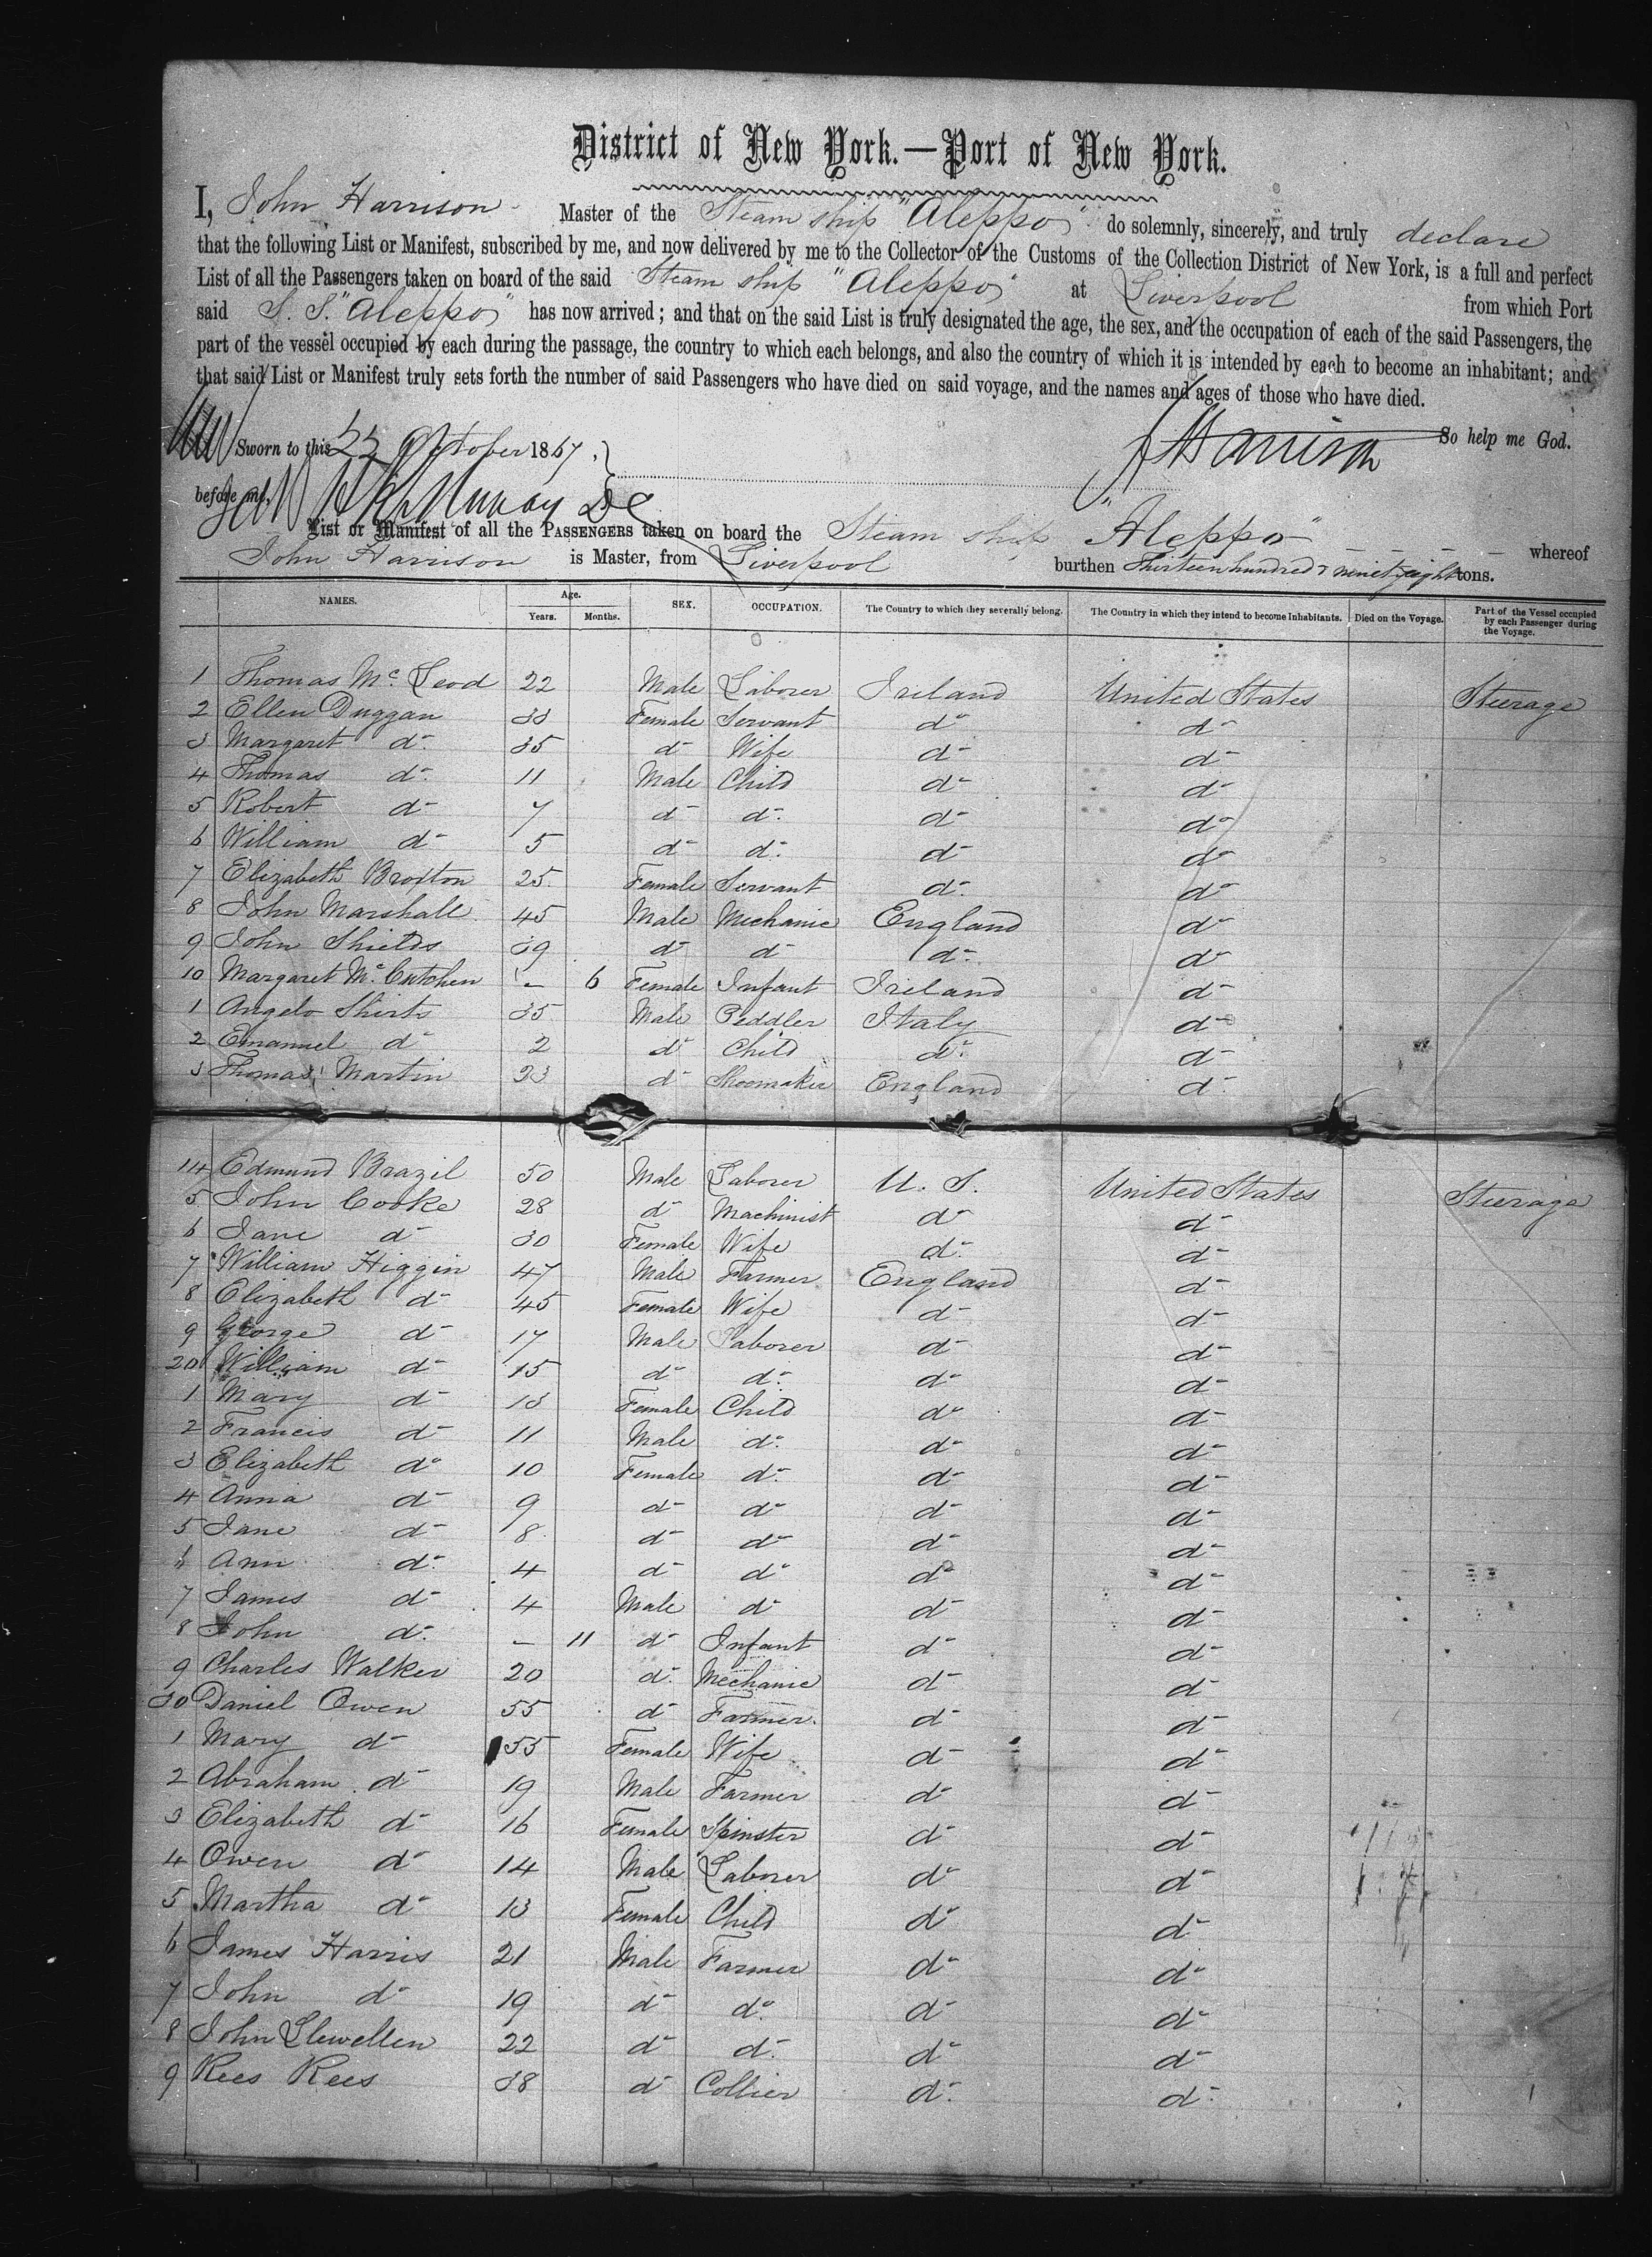 District of New York.—Port of New York.
I, John Harrison Master of the Steam ship "Aleppo" do solemnly, sincerely, and truly declare
that the following List or Manifest, subscribed by me, and now delivered by me to the Collector of the Customs of the Collection District of New York, is a full and perfect
List of all the Passengers taken on board of the said Steam ship "Aleppo" at Liverpool from which Port
said S. S. "Aleppo" has now arrived; and that on the said List is truly designated the age, the sex, and the occupation of each of the said Passengers, the
part of the vessel occupied by each during the passage, the country to which each belongs, and also the country of which it is intended by each to become an inhabitant; and
that said List or Manifest truly sets forth the number of said Passengers who have died on said voyage, and the names and ages of those who have died.
So help me God.
Sworn to this 22 October 1867. JHarrison
before me,
List or Manifest of all the PASSENGERS taken on board the Steam ship "Aleppo" whereof
John Harrison is Master, from Liverpool burthen Thirteen hundred & ninety eight tons.
NAMES. Age. Years. Months. SEX. OCCUPATION. The Country to which they severally belong. The Country in which they intend to become Inhabitants. Died on the Voyage. Part of the Vessel occupied by each Passenger during the Voyage.
1 Thomas McLeod 22 Male Laborer Ireland United States Steerage
2 Ellen Duggan 33 Female Servant do do
3 Margaret do 35 do Wife do do
4 Thomas do 11 Male Child do do
5 Robert do 7 do do do do
6 William do 5 do do do do
7 Elizabeth Broxton 25 Female Servant do do
8 John Marshall 45 Male Mechanic England do
9 John Shields 39 do do do do
10 Margaret McCutchen - 6 Female Infant Ireland do
1 Angelo Shirts 35 Male Peddler Italy do
2 Emanuel do 2 do Child do do
3 Thomas Martin 23 do Shoemaker England do
14 Edmund Brazil 50 Male Laborer U. S. United States Steerage
5 John Cooke 28 do Machinist do do
6 Jane do 30 Female Wife do do
7 William Higgin 47 Male Farmer England do
8 Elizabeth do 45 Female Wife do do
9 George do 17 Male Laborer do do
20 William do 15 do do do do
1 Mary do 13 Female Child do do
2 Francis do 11 Male do do do
3 Elizabeth do 10 Female do do do
4 Anna do 9 do do do do
5 Jane do 8 do do do do
6 Ann do 4 do do do do
7 James do 4 Male do do do
8 John do - 11 do Infant do do
9 Charles Walker 20 do Mechanic do do
30 Daniel Owen 55 do Farmer do do
1 Mary do 55 Female Wife do do
2 Abraham do 19 Male Farmer do do
3 Elizabeth do 16 Female Spinster do do
4 Owen do 14 Male Laborer do do
5 Martha do 13 Female Child do do
6 James Harris 21 Male Farmer do do
7 John do 19 do do do do
8 John Llewellen 22 do do do do
9 Rees Rees 38 do Collier do do